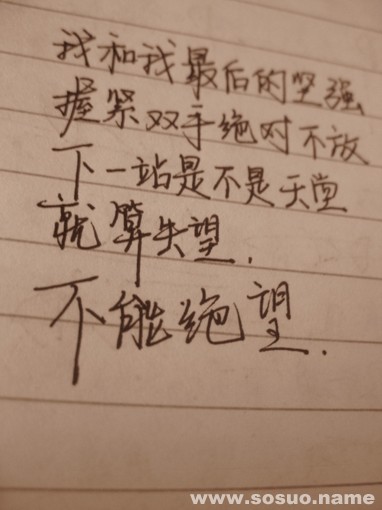 我和我最后的坚强
握紧双手绝对不放
下一站是不是天堂
就算失望.
不能绝望.
www.sosuo.name